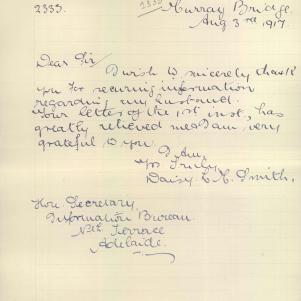 2335.
2335
Murray Bridge,
Aug 3rd 1917.
Dear Sir/
I wish to sincerely thank
you for securing information
regarding my husband.
Your letter of the 1st inst, has
greatly relieved me & am very
grateful to you.
I Am,
Yrs Truly
Daisy E. M. Smith.
Hon Secretary,
Information Bureau
Nth Terrace
Adelaide.